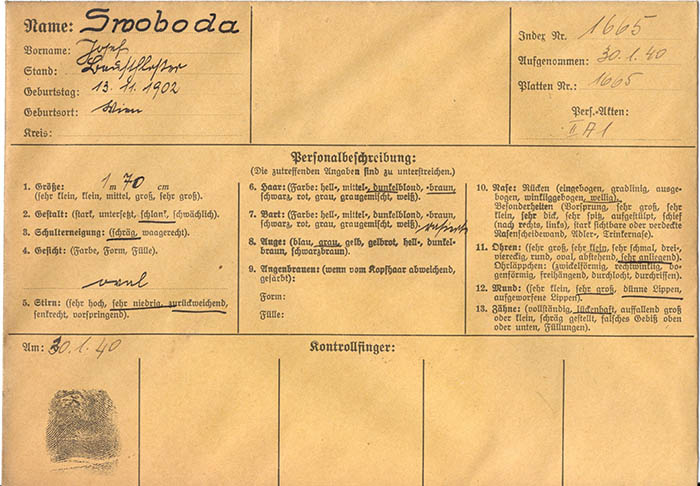 Name: Swoboda
Vorname: Josef
Stand: Bauschlosser
Geburtstag: 13. 11. 1902
Geburtsort: Wien
Kreis:
Index Nr. 1665
Aufgenommen: 30.1.40
Platten Nr.: 1665
Pers.-Akten:
II A1
Personalbeschreibung:
(Die zutreffenden Angaben sind zu unterstreichen).
1. Größe: 1 m 70 cm
(sehr klein, klein, mittel, groß, sehr groß).
2. Gestalt: (stark, untersetzt, schlank, schwächlich).
3. Schulterneigung: (schräg, waagerecht).
4. Gesicht: (Farbe, Form, Fülle).
oval
5. Stirn: (sehr hoch, sehr niedrig, zurückweichend,
senkrecht, vorspringend).
6. Haar: (Farbe: hell-, mittel-, dunkelblond, -braun,
schwarz, rot, grau, graugemischt, weiß).
7. Bart: (Farbe: hell-, mittel-, dunkelblond, -braun,
schwarz, rot, grau, graugemischt, weiß). rasiert
8. Auge: (blau, grau, gelb, gelbrot, hell-, dunkel-
braun, schwarzbraun).
9. Augenbrauen: (wenn vom Kopfhaar abweichend,
gefärbt):
Form:
Fülle:
10. Nase: Rücken (eingebogen, gradlinig, ausge-
bogen, winkliggebogen, wellig).
Besonderheiten (Vorsprung, sehr groß, sehr
klein, sehr dick, sehr spitz, aufgestülpt, schief
(nach rechts, links), stark sichtbare oder verdeckte
Nasenscheidewand, Adler-, Trinkernase).
11. Ohren: (sehr groß, sehr klein, sehr schmal, drei-,
viereckig, rund, oval, abstehend, sehr anliegend).
Ohrläppchen: (zwickelförmig, rechtwinklig, bo-
genförmig, freihängend, durchlocht, durchrissen).
12. Mund: (sehr klein, sehr groß, dünne Lippen,
aufgeworfene Lippen).
13. Zähne: (vollständig, lückenhaft, auffallend groß
oder klein, schräg gestellt, falsches Gebiß oben
oder unten, Füllungen).
Am: 30.1.40
Kontrollfinger: